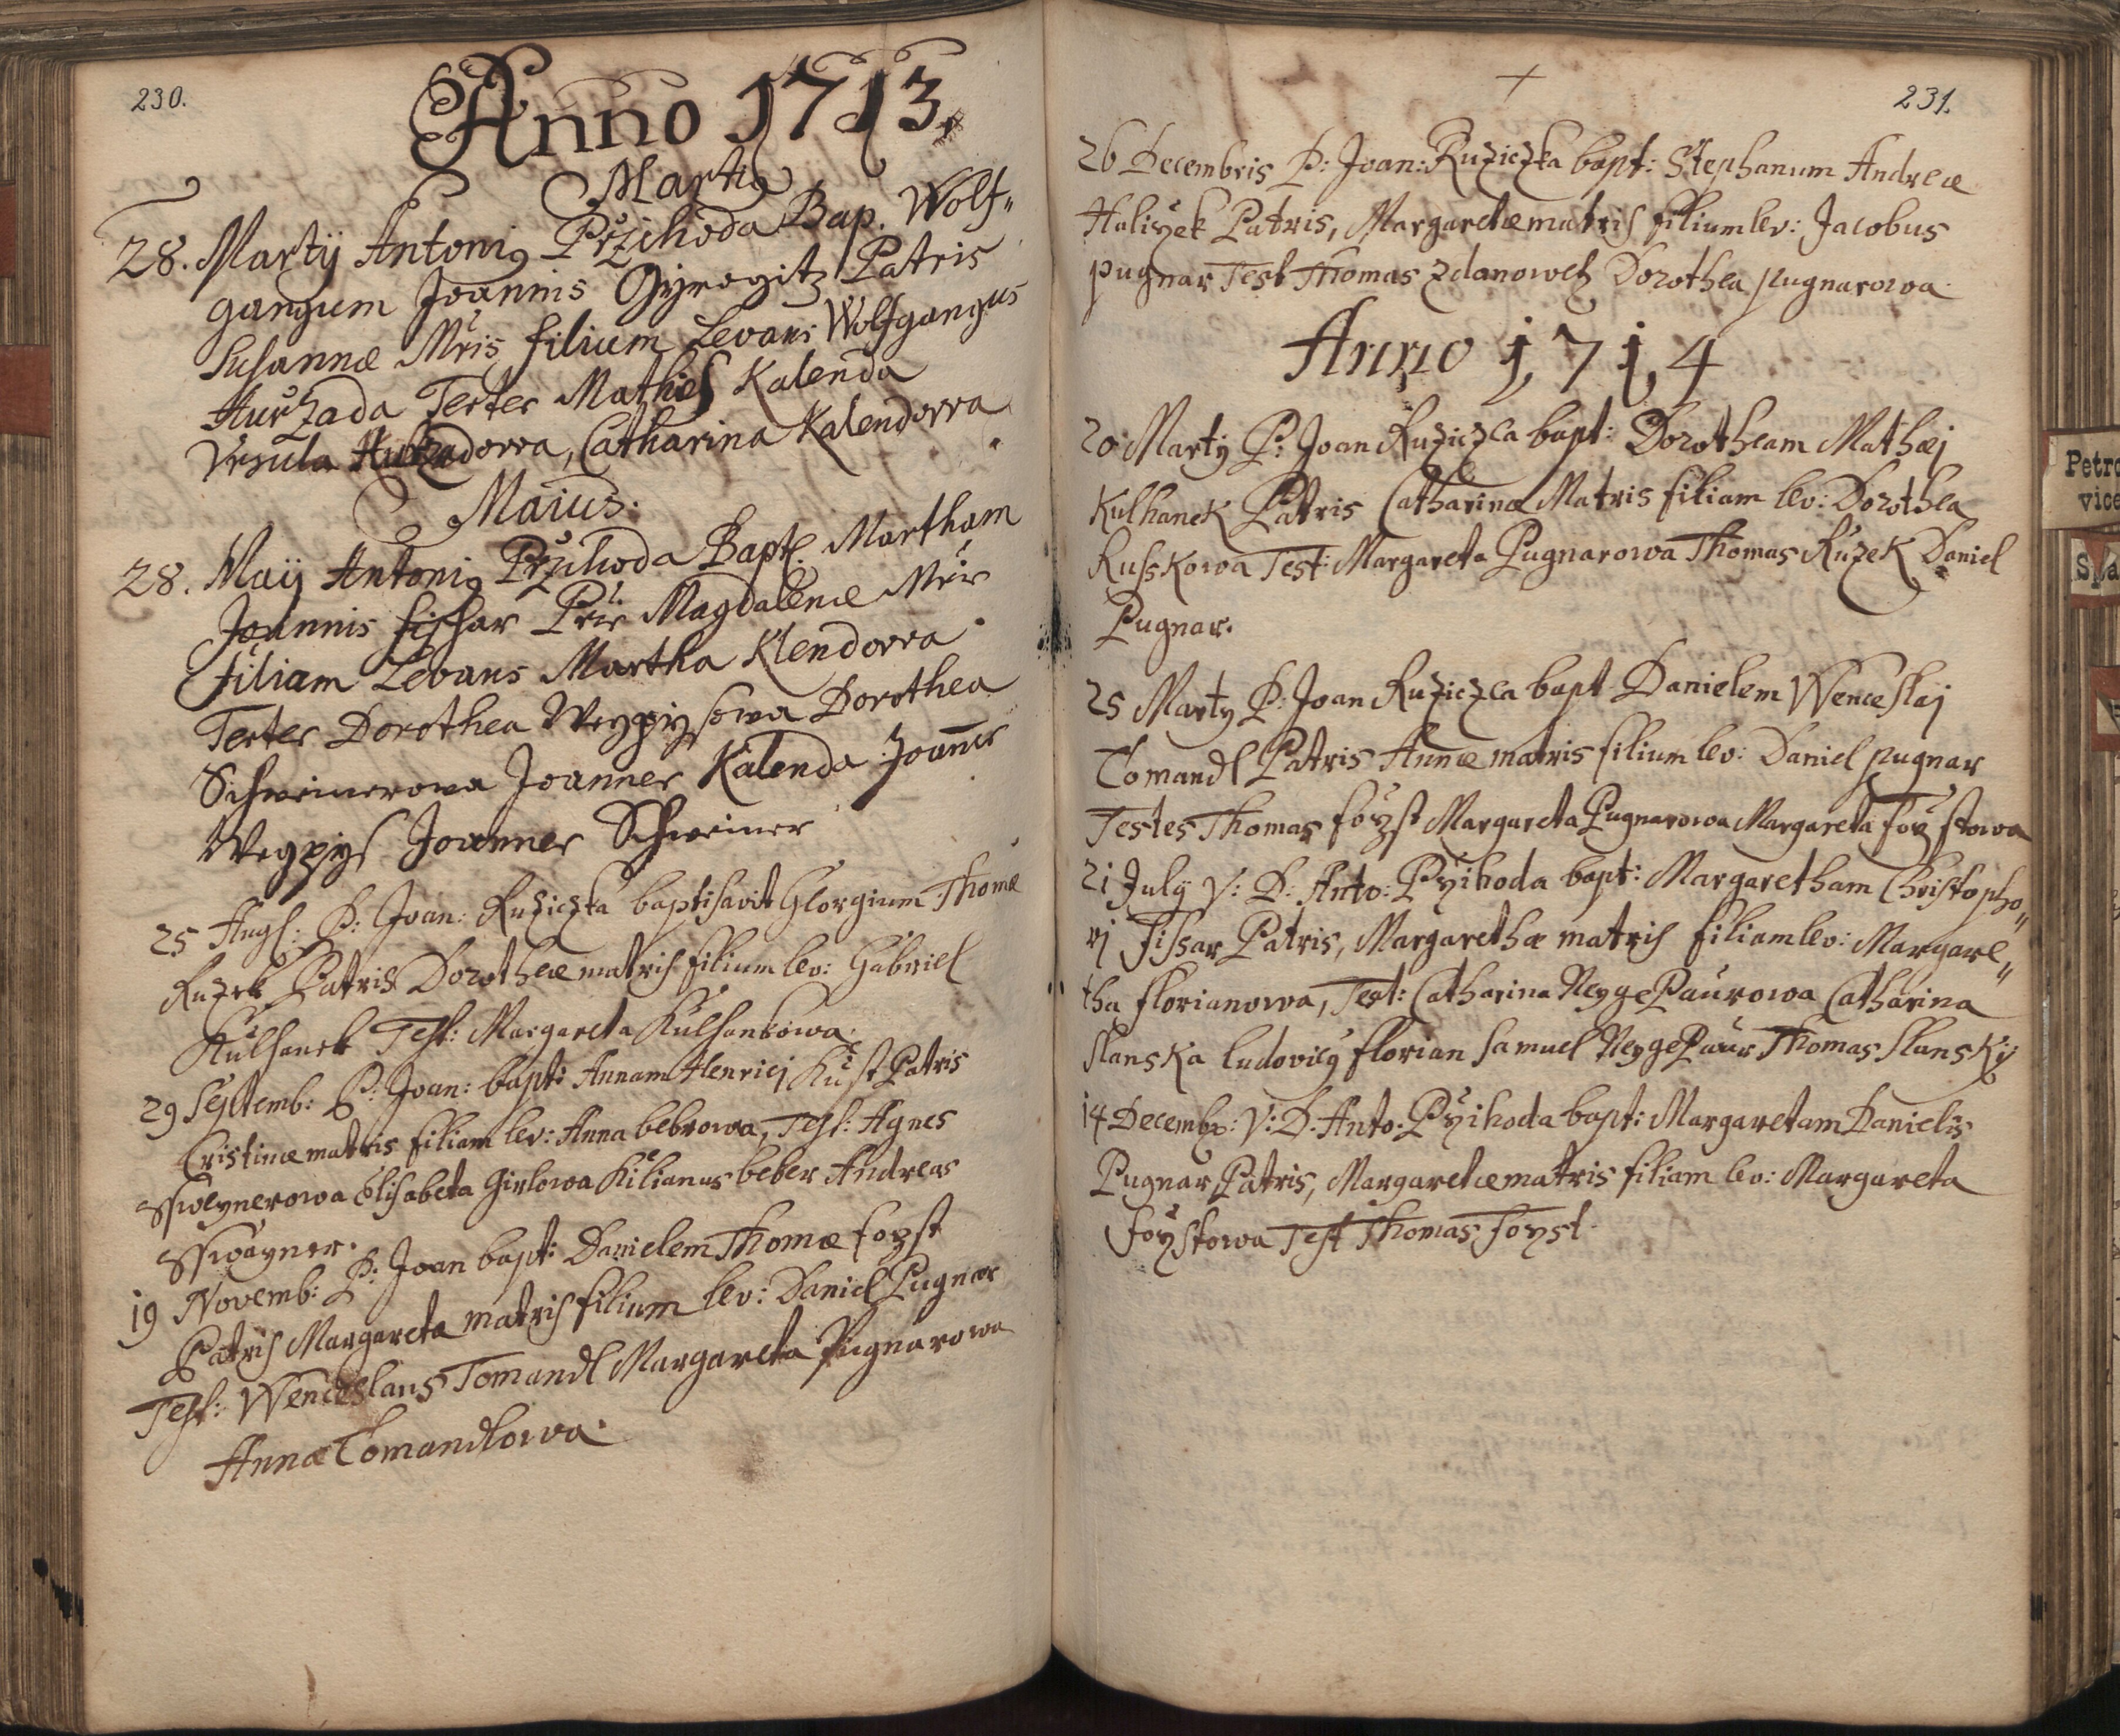 230.
Anno 1713.
Martiꝰ
28. Martij Antoniꝰ Przichoda Bap. Wolf„
gangum Joannis Gyrogitz Patris
Susannæ Mris filium Levans Wolfgangus
Hurzada Testes Mathes Kalenda
Vrsula Hurzadowa, Catharina Kalendowa
Maius:
28. Maij Antoniꝰ Przihoda Bapt. Martham
Joannis fischar Pris Magdalenæ Mris
filiam Levans Martha Klendowa
Testes Dorothea Weypisowa Dorothea
Schweinerowa Joannes Kalenda Joannes
Weypys Joannes Schweiner
25 Aug: P: Joan: Ruziczka baptisavit Georgium Thomæ
Ruzek Patris Dorotheæ matris filium lev: Gabriel
Kulhanek Test: Margareta Kulhankowa.
29 Septemb: P: Joan: bapt: Annam Henricj Kust Patris
Cristinæ matris filiam lev: Anna bebrowa, Test: Agnes
Sswaynerowa Elisabeta Girlowa Kilianus beber Andreas
Sswayner.
19 Novemb: P: Joan bapt: Danielem Thomæ foyst
Patris Margareta matris filium lev: Daniel Pugnar
Test: Wenceslaus Tomandl Margareta Pugnarowa
Anna Tomandlowa.
231.
26 Decembris P: Joan: Ruziczka bapt: Stephanum Andreæ
Haliczek Patris, Margaretæ matris filium lev: Jacobus
pugnar Test Thomas Zdanowetz Dorothea pugnarowa.
Anno 1714
20 Martij P: Joan Ruziczca bapt: Dorotheam Mathæj
Kulhanek Patris Catharinæ Matris filiam lev: Dorothea
Russkowa Test: Margareta Pugnarowa Thomas Ruzek Daniel
Pugnar.
25 Marty P: Joan Ruziczca bapt Danielem Wenceslaj
Tomandl Patris Annæ matris filium lev: Daniel pugnar
Testes Thomas foyst Margareta Pugnarowa Margareta Foystowa
21 July V: D: Anto: Przihoda bapt: Margaretham Christopho„
rj Fissar Patris, Margarethæ matris filiam lev: Margare„
tha florianowa, Test: Catharina NeygePaurowa Catharina
slanska ludovicy florian Samuel NeygePaur Thomas slansky
14 Decemb: V: D: Anto: Przihoda bapt: Margaretam Danielis
Pugnar Patris, Margaretæ matris filiam lev: Margareta
foystowa Test Thomas foyst.
Petro
vice